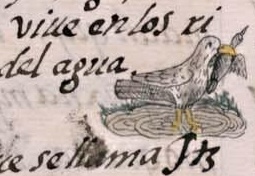 viue enlos ri
del agua.
se llama Jtz